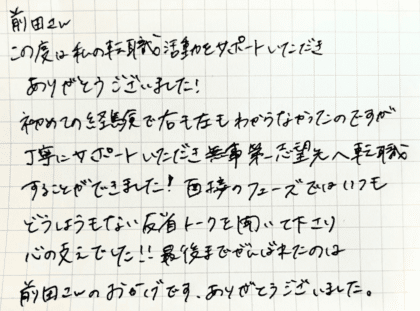 前田さん
この度は私の転職活動をサポートいただき
ありがとうございました!
初めての経験で右も左もわからなかったのですが
丁寧にサポートいただき無事第一志望先へ転職
することができました! 面接のフェーズではいつも
どうしようもない反省トークを聞いて下さり
心の支えでした!! 最後までがんばれたのは
前田さんのおかげです、ありがとうございました。